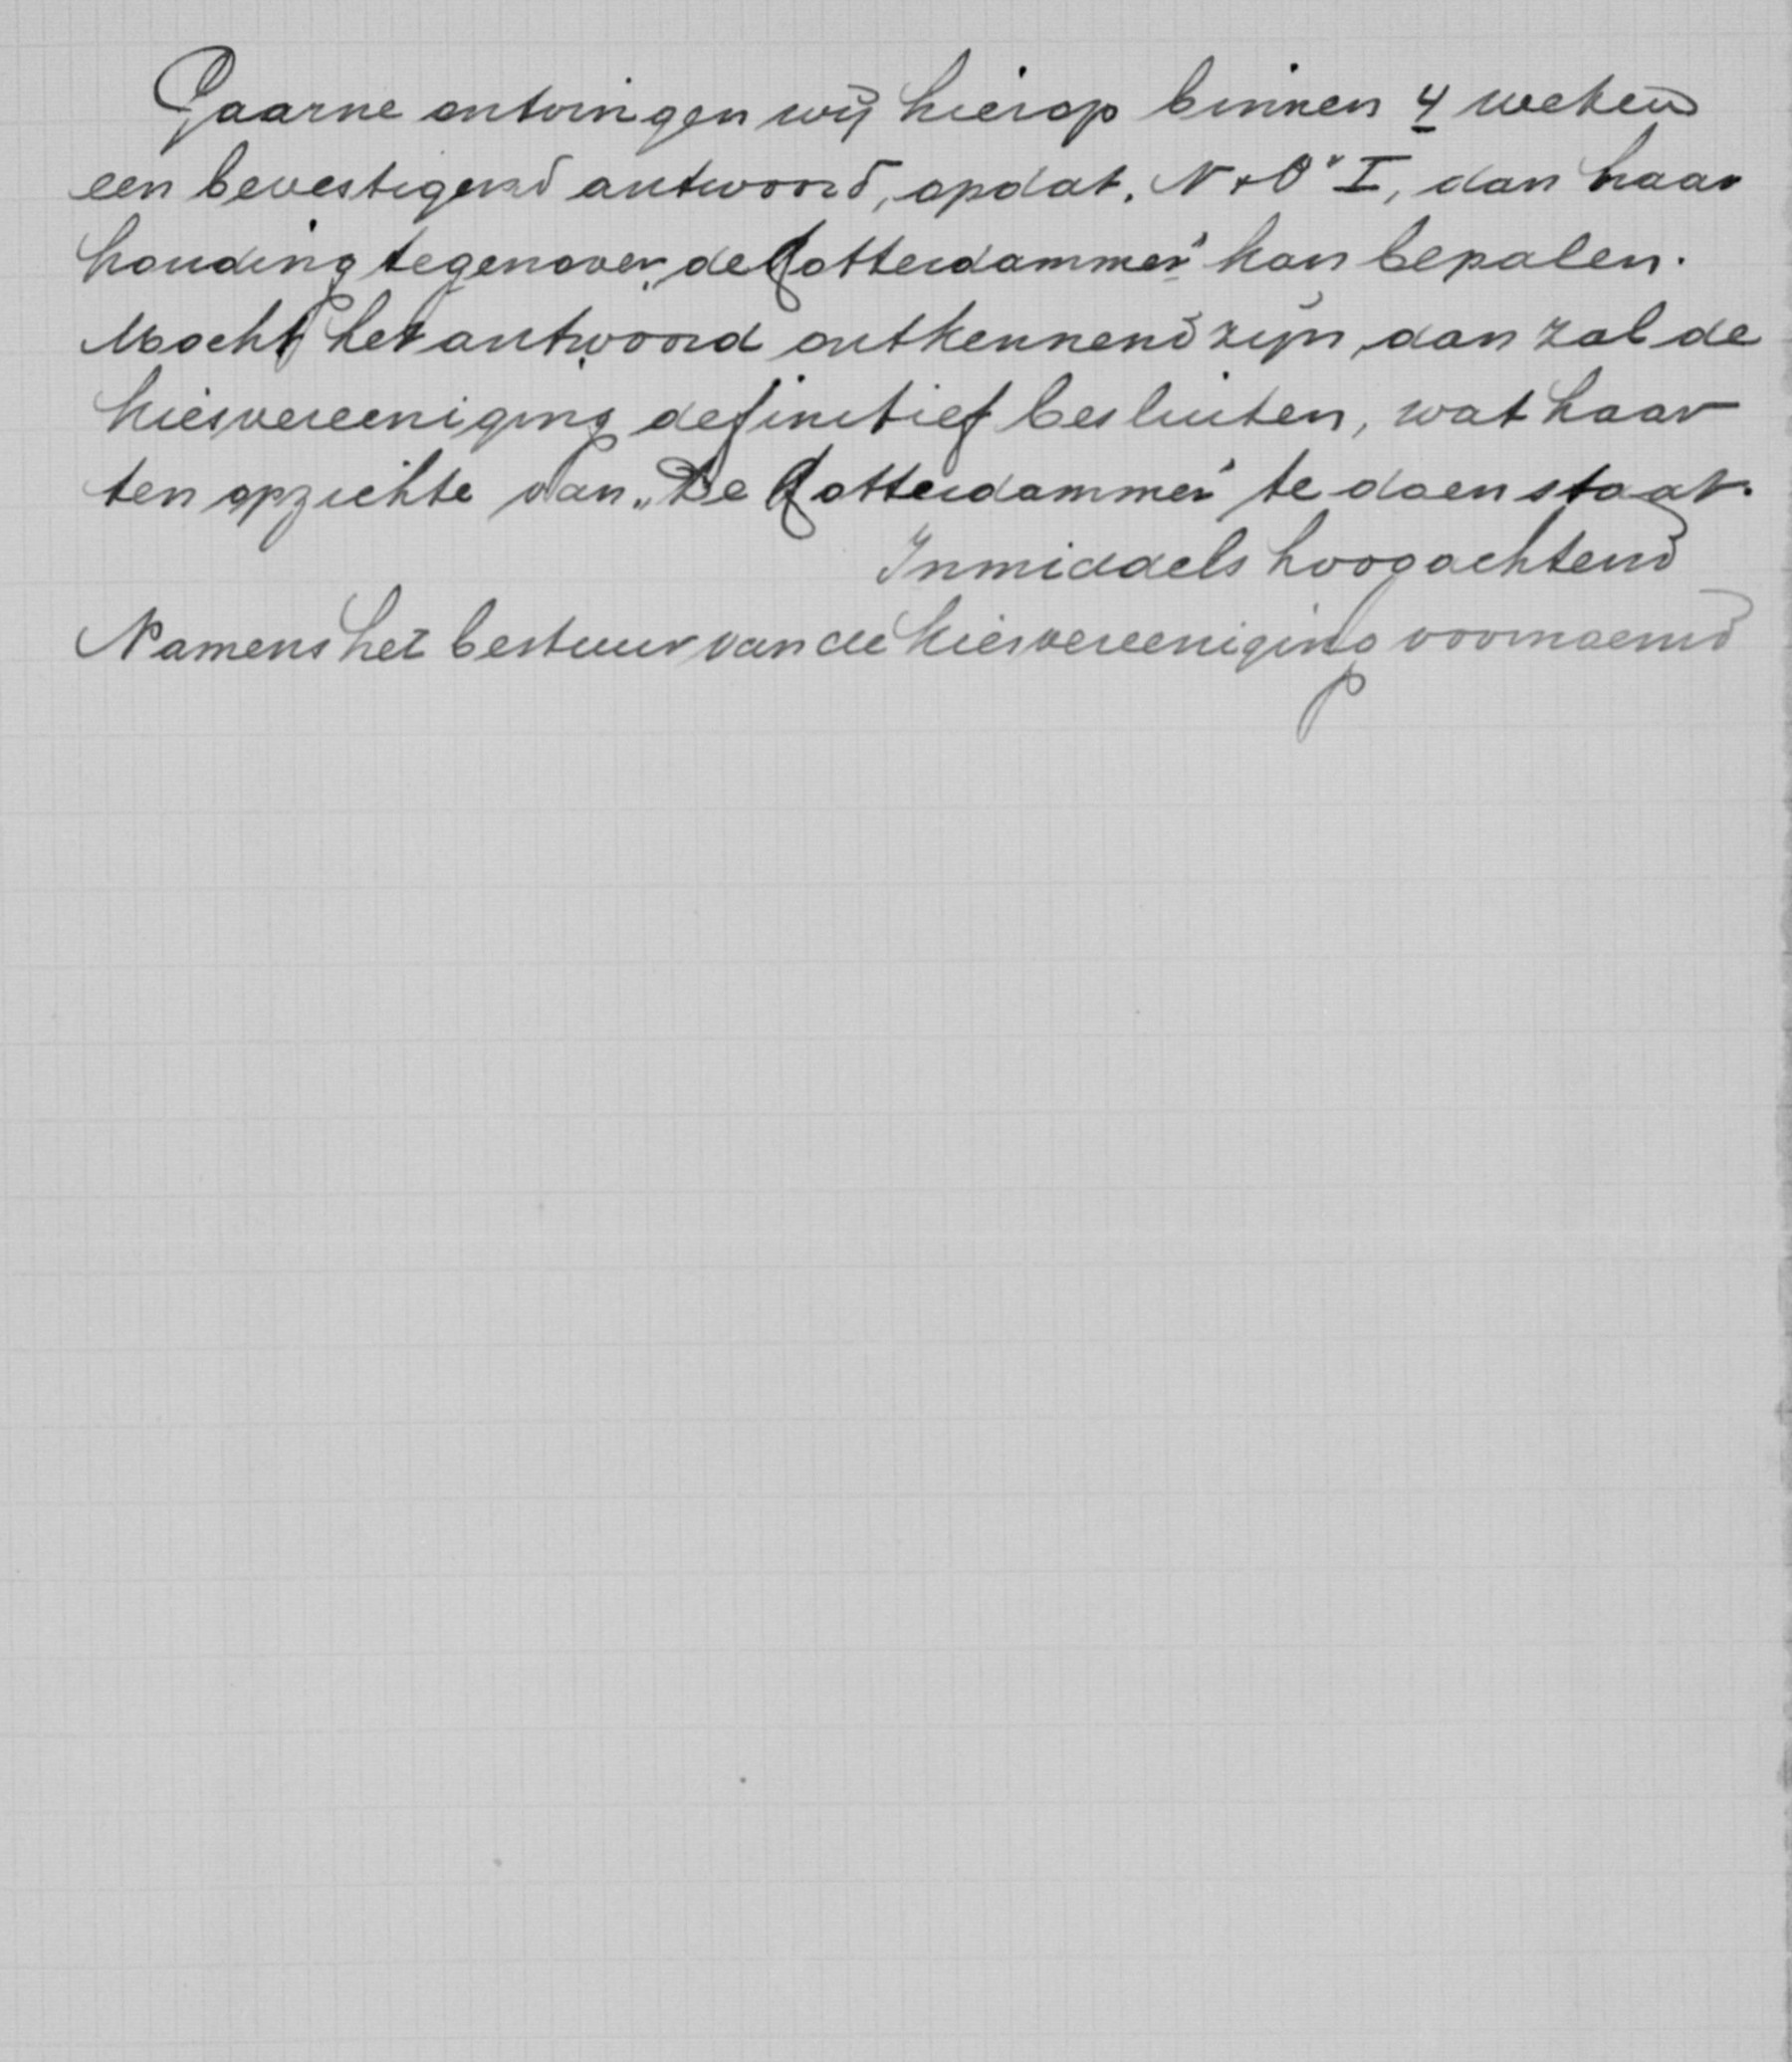 Gaarne ontvingen wij hierop binnen 4 weken
een bevestigend antwoord, opdat „N & O" I, dan haar
houding tegenover „de Rotterdammer" kan bepalen.
Mocht het antwoord ontkennend zijn, dan zal de
kiesvereeniging definitief besluiten, wat haar
ten opzichte van „De Rotterdammer" te doen staat.
Inmiddels hoogachtend
Namens het bestuur van de kiesvereeniging voornoemd